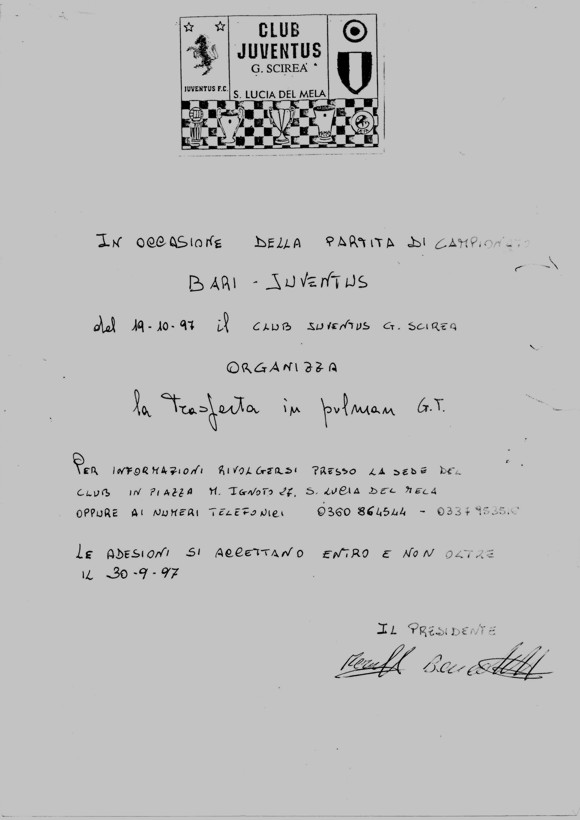 CLUB
JUVENTUS
G. SCIREA'
JUVENTUS F.C.
S. LUCIA DEL MELA
IN OCCASIONE DELLA PARTITA DI CAMPIONATO
BARI - JUVENTUS
del 19-10-97 il CLUB JUVENTUS G. SCIREA
ORGANIZZA
la trasferta in pulman G.T.
PER INFORMAZIONI RIVOLGERSI PRESSO LA SEDE DEL
CLUB IN PIAZZA M. IGNOTO 27, S. LUCIA DEL MELA
OPPURE AI NUMERI TELEFONICI 0360 864544 -
LE ADESIONI SI ACCETTANO ENTRO E NON OLTRE
IL 30-9-97
IL PRESIDENTE